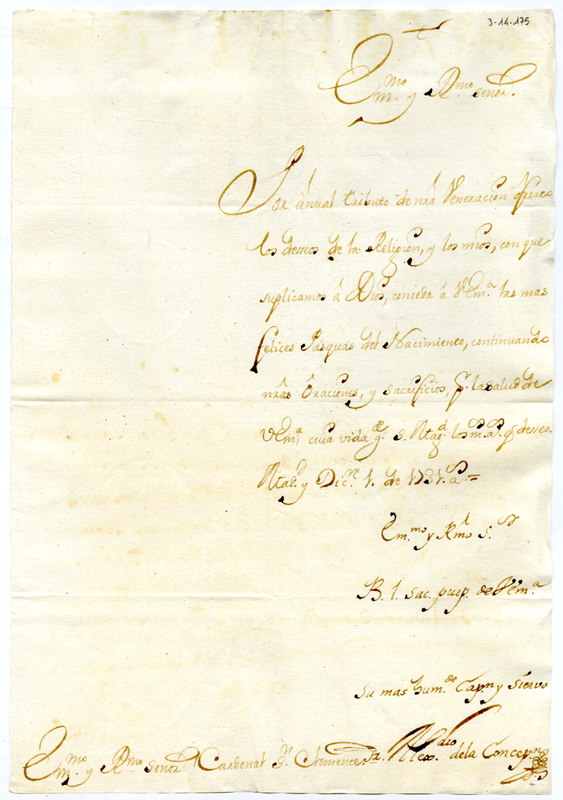 3-14-175
Em.mo y R.mo señor.
Por annual tributo de nrâ Veneracion ofrezco
los deseos de la Religion, y los mios, con que
suplicamos â Dios, conceda â VEm.ª las mas
felices Pasquas del Nacimiento, continuando
nrâs Ôraciones, y sacrificios, p.r la salud de
VEm.ª cuia vida g.e N. los m.s a.s q deseo.
y Dic.re 1. de 1731. a.s =
Em.mo y R.mo S.or
B. l. sac. purp. de VEm.ª
su mas hum.de Cappn y siervo
Em.mo y R.mo señor Cardenal S.n Clemente. Fr. de la Concep.on